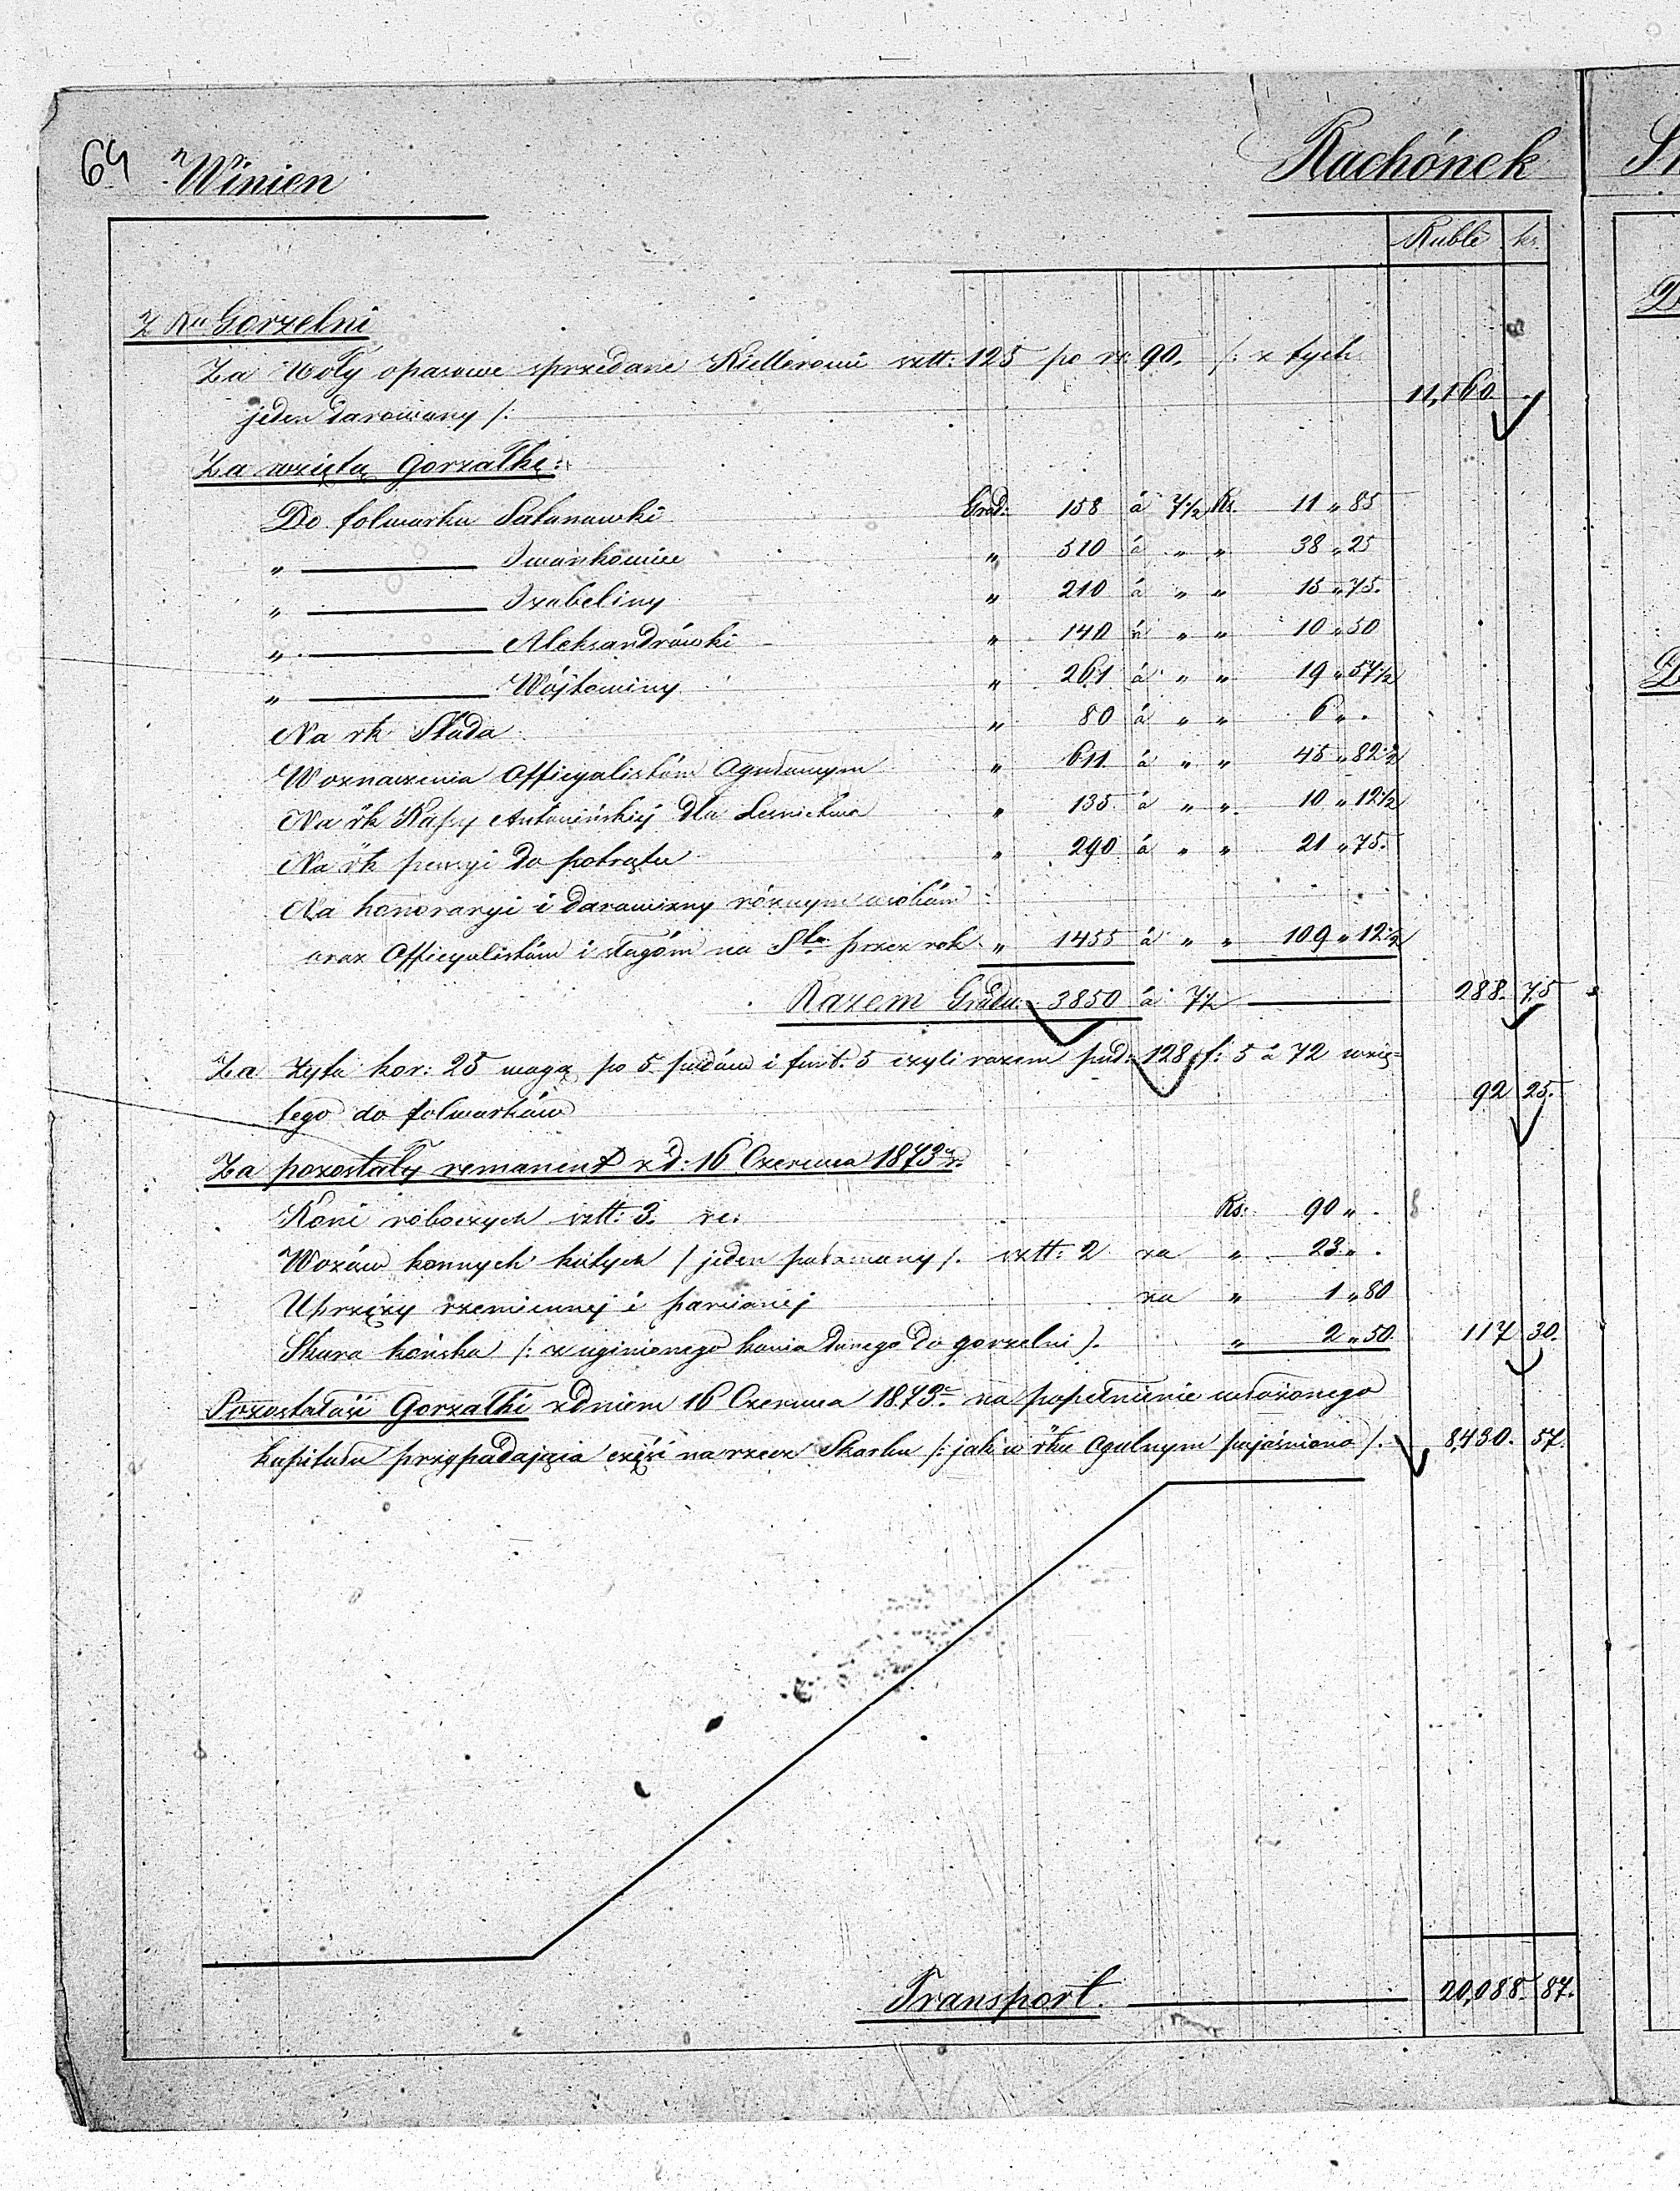 64 Winien Rachónek
Ruble kr.
Z Ku Gorzelni
Za Woły opasowe sprzedane Kiellerowi sztt: 125 po rs: 90. /: z tych
jeden darowany /: 11,160 .
Za wziętą Gorzałkę:
Do folwarku Satanawki Grad: 158 á 7½ Rs. 11 „ 85
„ ——— Iwankowiec „ 510 á „ „ 38 „ 25
„ ——— Izabeliny „ 210 á „ „ 15 „ 75.
„ ——— Aleksandrówki „ 140 á „ „ 10 „ 50
„ ——— Wójtowiny „ 261 á „ „ 19 „ 57½
Na rk Stada „ 80 á „ „ 6 „ .
W oznaczenia Officyalistóm „ 611 á „ „ 45 „ 82½
Na rk Kassy Antonińskiej dla Lesnictwa „ 135 á „ „ 10 „ 12½
Na rk pensyi do potrątu „ 290 á „ „ 21 „ 75.
Na honoraryi i darowizny róznym osobóm
oraz Officyalistóm i sługóm na Sta przez rok „ 1455 á „ „ 109 „ 12½
Razem Gradu: 3850 á 7½ ——— 288. 75
Za Żyta kor: 25 wagą po 5 pudów i funt. 5 czyli razem pud: 128 f: 5 á 72 wzię=
tego do folwarków 92 25.
Za pozostały remanent z d: 16 Czerwca 1873 r.
Koni roboczych sztt: 3. Rs: 90 „ .
Wozów konnych kutych / jeden połamany /. sztt: 2 za „ 23 „ .
Uprzęży rzemiennej i parcianej za „ 1 „ 80
Skura końska /: z uginionego konia danego do gorzelni /. „ 2 „ 50. 117 30.
Pozostałość Gorzałki z dniem 16 Czerwca 1873 r. na popełnienie włożonego
kapitału przypadająca część na rzecz Skarbu /: jak w rku Ogulnym pojaśniono /. 8,430. 57.
Transport. ——— 20,088. 87.